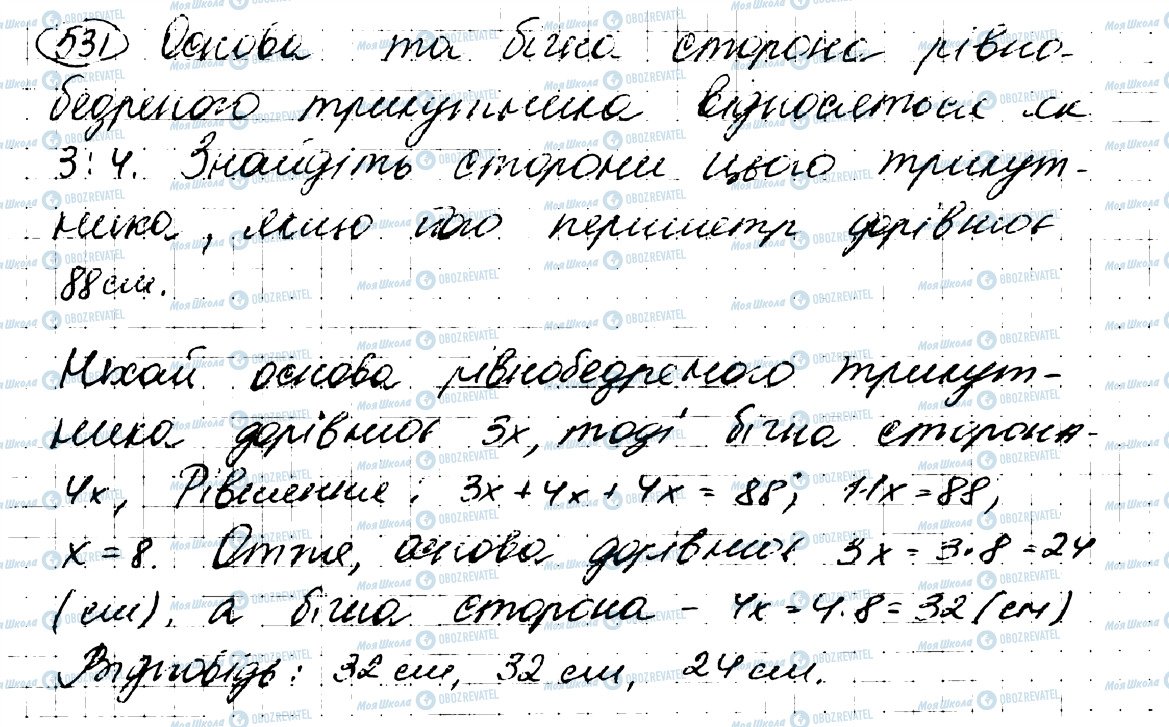 531 Основа та бічна сторона рівно-
бедреного трикутника відносяться як
3:4. Знайдіть сторони цього трикут-
ника, якщо його периметр дорівнює
88 см.
Нехай основа рівнобедреного трикут-
ника дорівнює 3x, тоді бічна сторона -
4x, Рівняння: 3x + 4x + 4x = 88; 11x = 88;
x = 8. Отже, основа дорівнює 3x = 3·8 = 24
(см), а бічна сторона - 4x = 4·8 = 32 (см)
Відповідь: 32 см, 32 см, 24 см.